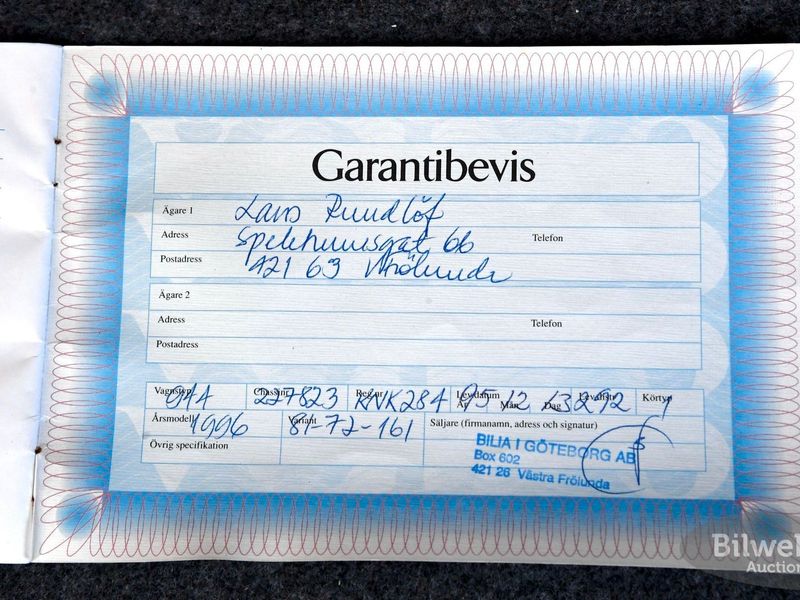 Garantibevis
Ägare 1 Lars Rundlöf
Adress 66 Telefon
Postadress 421 63 V Frölunda
Ägare 2
Adress Telefon
Postadress
Vagnstyp Chassinr 227823 Reg.nr 284 Levdatum År 95 Mån 12 Dag 13 Levalistr 292 Körtyp 1
Årsmodell 1996 Variant 81-72-161 Säljare (firmanamn, adress och signatur)
Övrig specifikation
BILIA I GÖTEBORG AB
Box 602
421 26 Västra Frölunda
Bilweb
Auctions